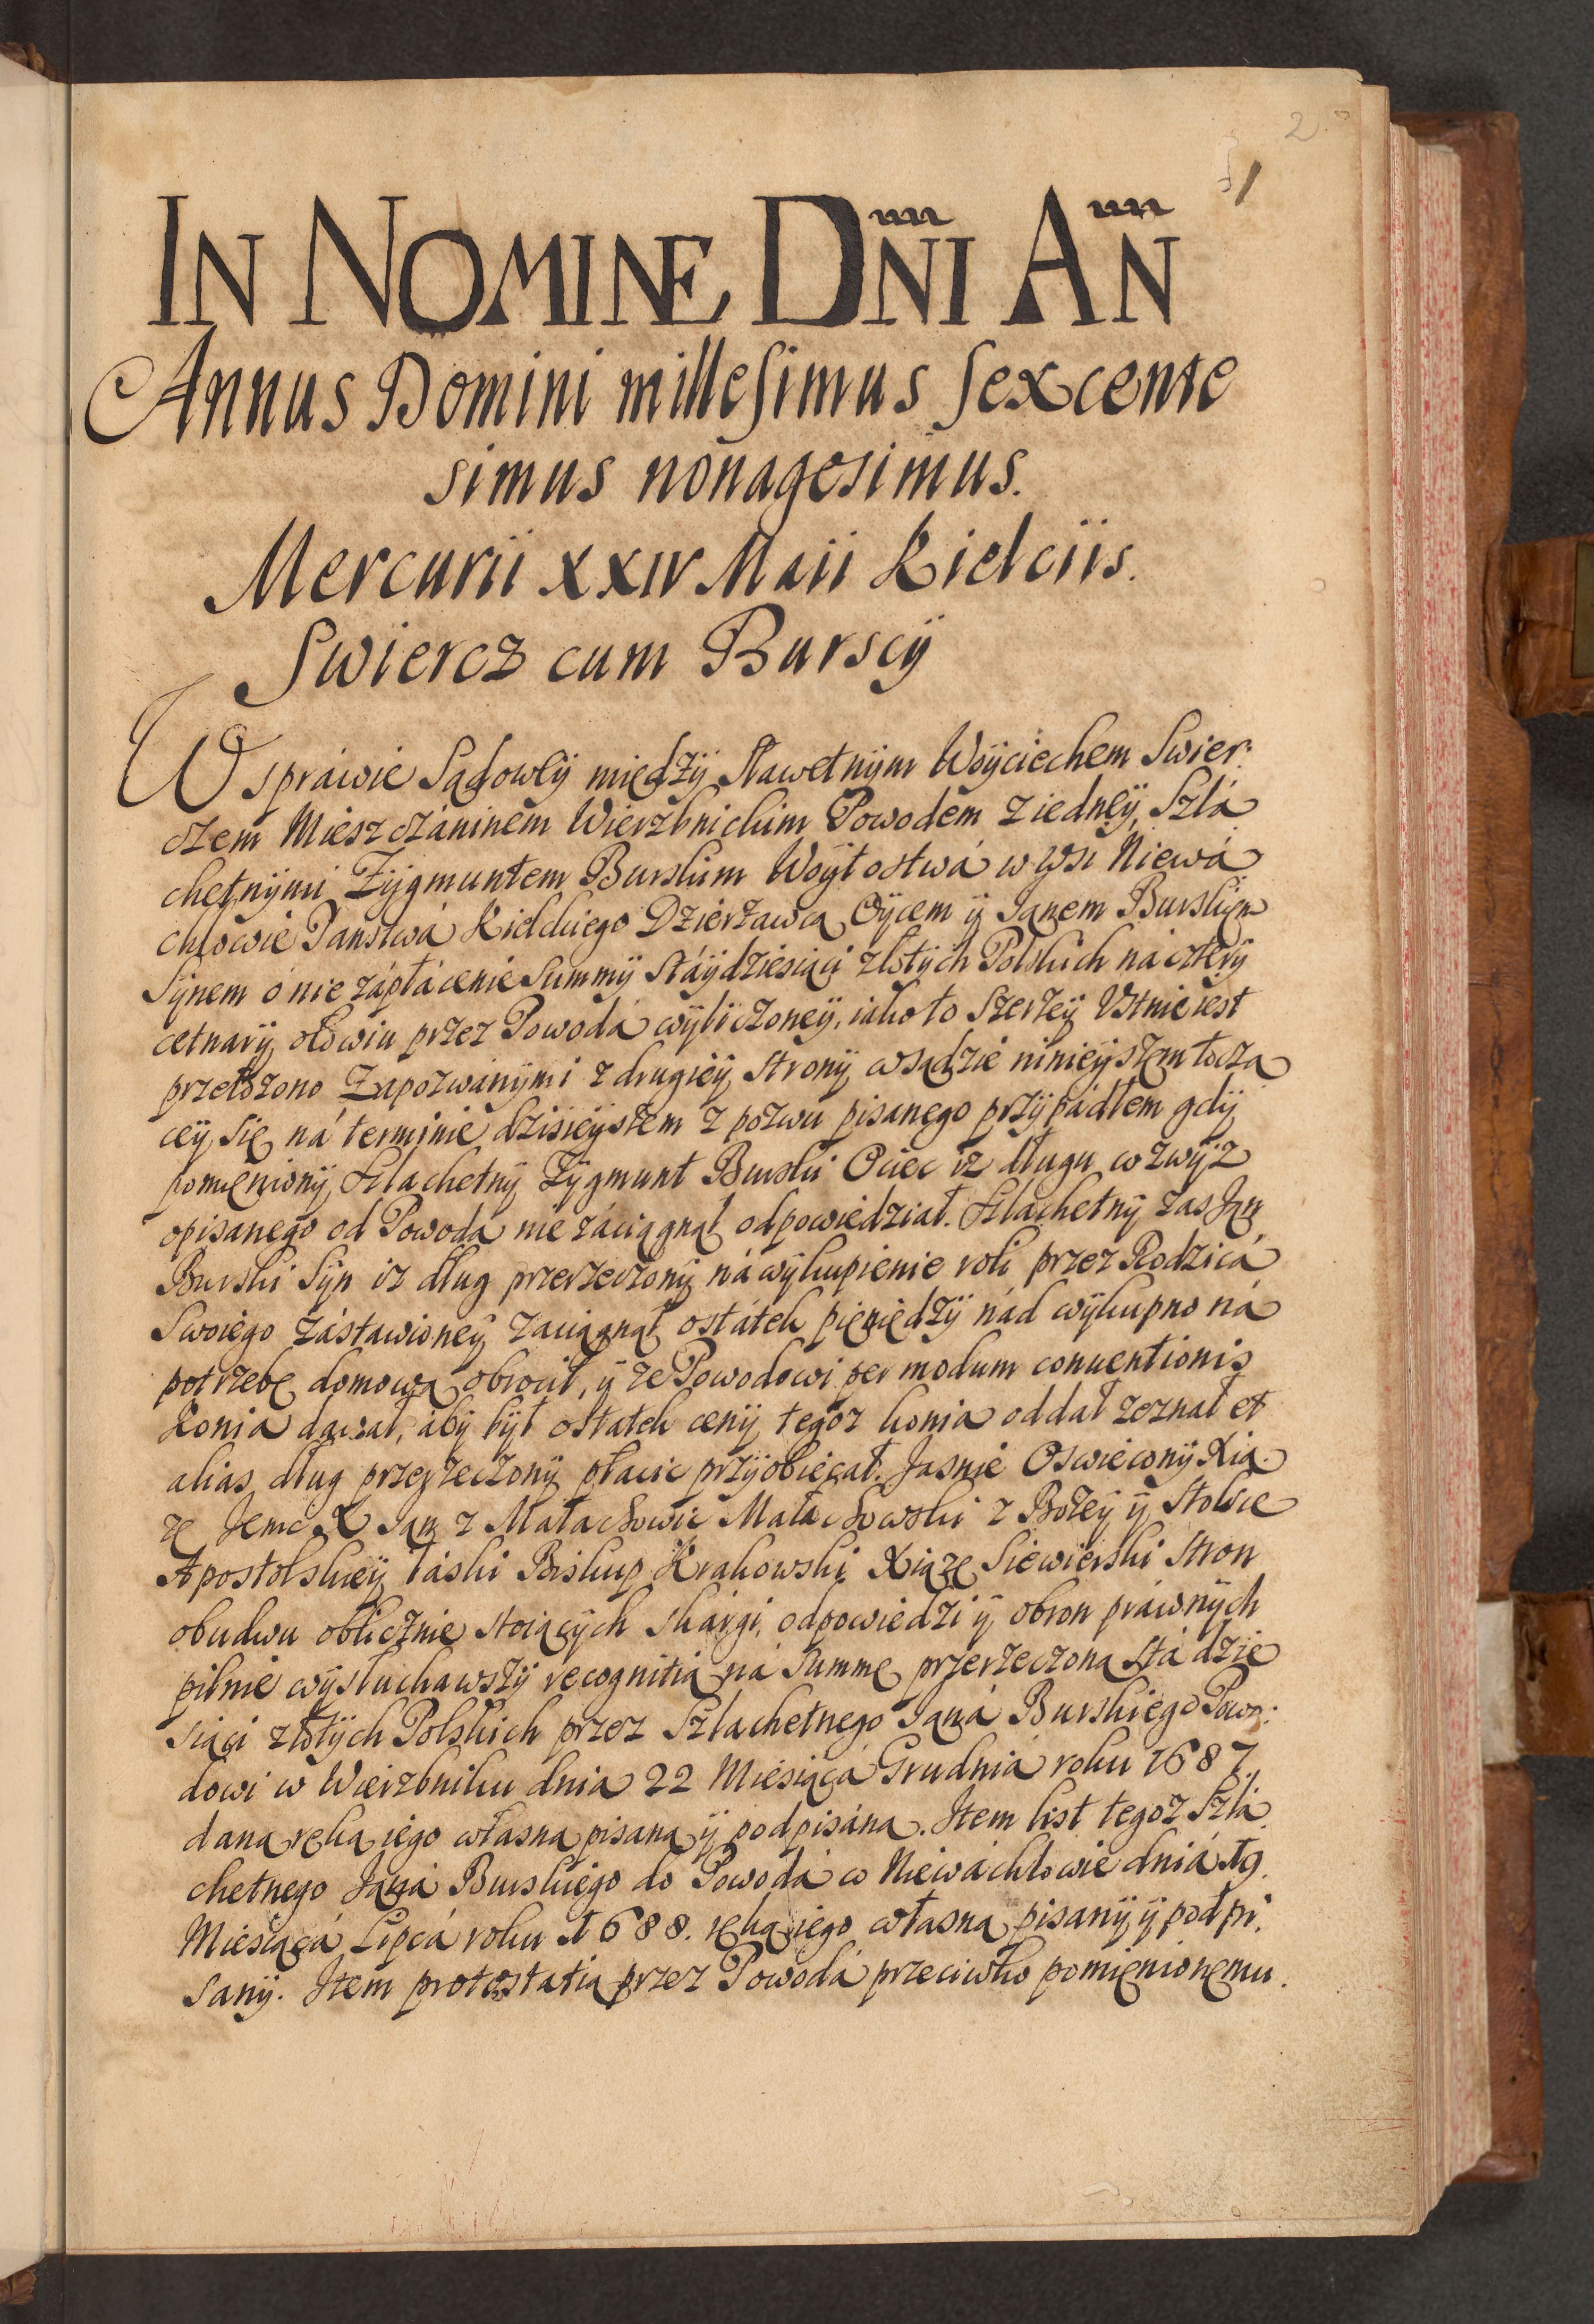 2
1
IN NOMINE DNI AN
Annus Domini millesimus sexcente
simus nonagesimus.
Mercurii XXIV Maii Kielciis.
Swiercz cum Burscÿ
W spráwie Sądowęÿ międzÿ Sławetnÿm Woÿciechem Swier:
czem Mieszczáninem Wierzbnickim Powodem z iednęÿ, Szlá
chetnÿmi Zÿgmuntem Burskim Woÿtostwá w Wsi Niewá
chlowie Państwá Kielckiego Dzierżawcą Oÿcem ÿ Janem Burskÿm
Sÿnem o nie zápłácenie Summÿ Stáÿdziesiąci złotÿch Polskich ná czterÿ
cetnarÿ ołowiu przez Powodá wÿliczoneÿ, iako to szerzeÿ Vstnie iest
przełożono Zapozwánÿmi z drugieÿ stronÿ w sądzie ninieÿszem tocza
ceÿ się ná terminie dzisieÿszem z pozwu pisanego przÿpádłem gdÿ
pomięnionÿ Szlachetnÿ Zÿgmunt Burski Ociec iż długu wzwÿż
opisanego od Powodá nie záciągnął odpowiedział. Szlachetnÿ zas Jan
Burski Sÿn iż dług przerzeczonÿ ná wÿkupienie roli przez Rodzicá
Swoiego zástawioneÿ zaciągnął ostátek pieniędzÿ nád wÿkupno ná
potrzebę domową obrocił, ÿ że Powodowi per modum conuentionis
Konia dawał, abÿ bÿł ostatek cenÿ tegoż konia oddał zeznał et
alias dług przerzeczonÿ płacic przÿobiecał. Jasnie Oswieconÿ Xią
żę Jemc X Jan z Małachowic Małachowski z Bożeÿ ÿ Stolice
Apostolskieÿ łáski Biskup Krakowski Xiążę Siewierski Stron
obudwu oblicznie stoiącÿch skárgi, odpowiedzi ÿ obron práwnÿch
pilnie wÿsłuchawszÿ recognitią ná Summę przerzeczoną stá dzie
siąci złotÿch Polskich przez Szlachetnego Janá Burskiego Powo:
dowi w Wierzbniku dnia 22 Miesiącá Grudniá roku 1687.
daną ręką iego własną pisaną ÿ podpisáną. Item list tegoż Szlá
chetnego Janá Burskiego do Powodá w Niewáchlowie dniá 19.
Miesiącá Lipcá roku 1688. ręką iego własną pisanÿ ÿ podpi.
sanÿ. Item protestatią przez Powodá przeciwko pomięnionemu.